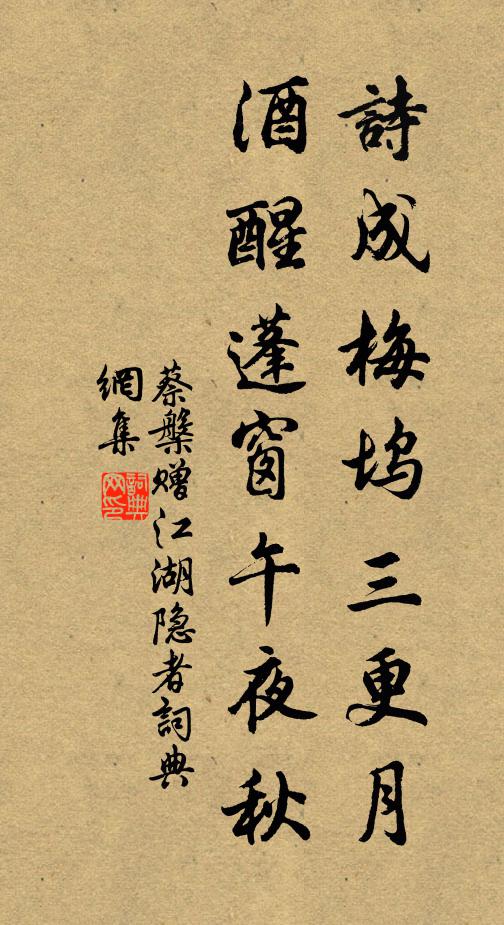 詩成梅塢三更月
酒醒蓬窗午夜秋
蔡槃赠江湖隐者詞典
網集
詞典
网印